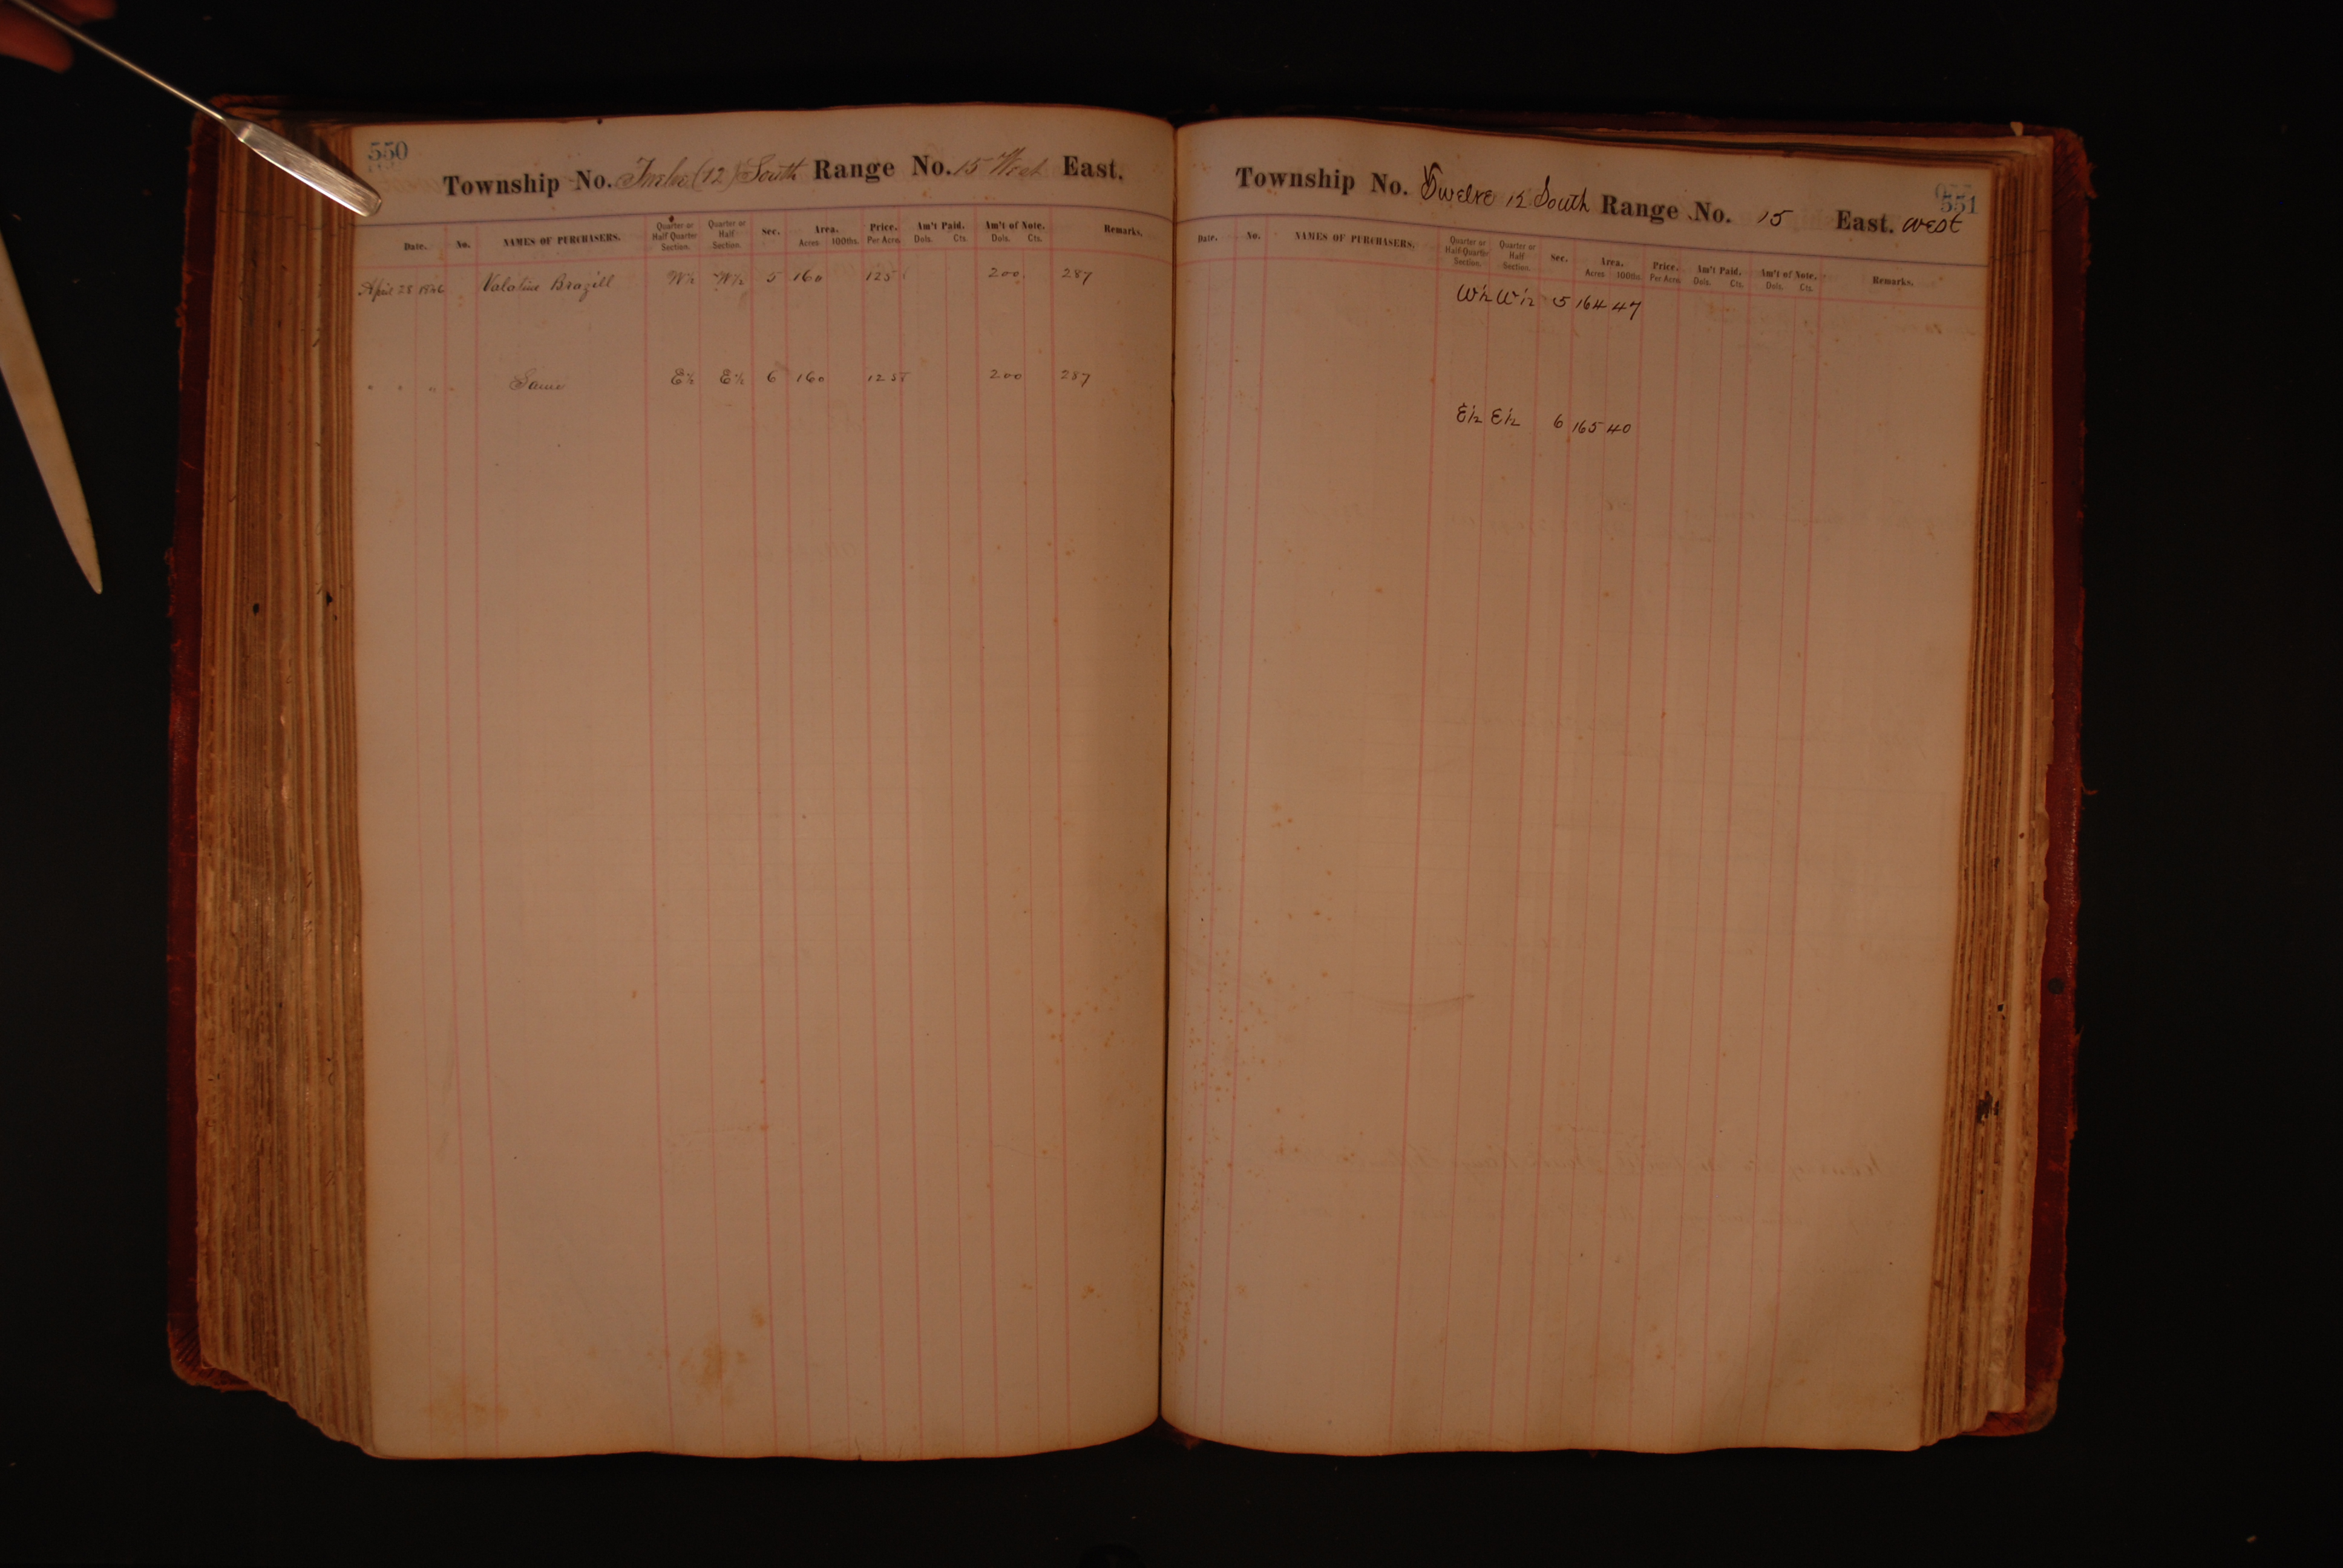 550
Township No. Twelve (12) South Range No. 15 West East.
Date. No. NAMES OF PURCHASERS. Quarter or Half Quarter Section. Quarter or Half Section. Sec. Area. Acres 100ths. Price. Per Acre Am't Paid. Dols. Cts. Am't of Note. Dols. Cts. Remarks.
April 28 Brazill W½ W½ 5 160 125 200 287
" " " " Same E½ E½ 6 160 125 200 287
551
Township No. Twelve 12 South Range No. 15 East. West
Date. No. NAMES OF PURCHASERS. Quarter or Half Quarter Section. Quarter or Half Section. Sec. Area. Acres 100ths. Price. Per Acre Am't Paid. Dols. Cts. Am't of Note. Dols. Cts. Remarks.
W½ W½ 5 164 47
E½ E½ 6 165 40